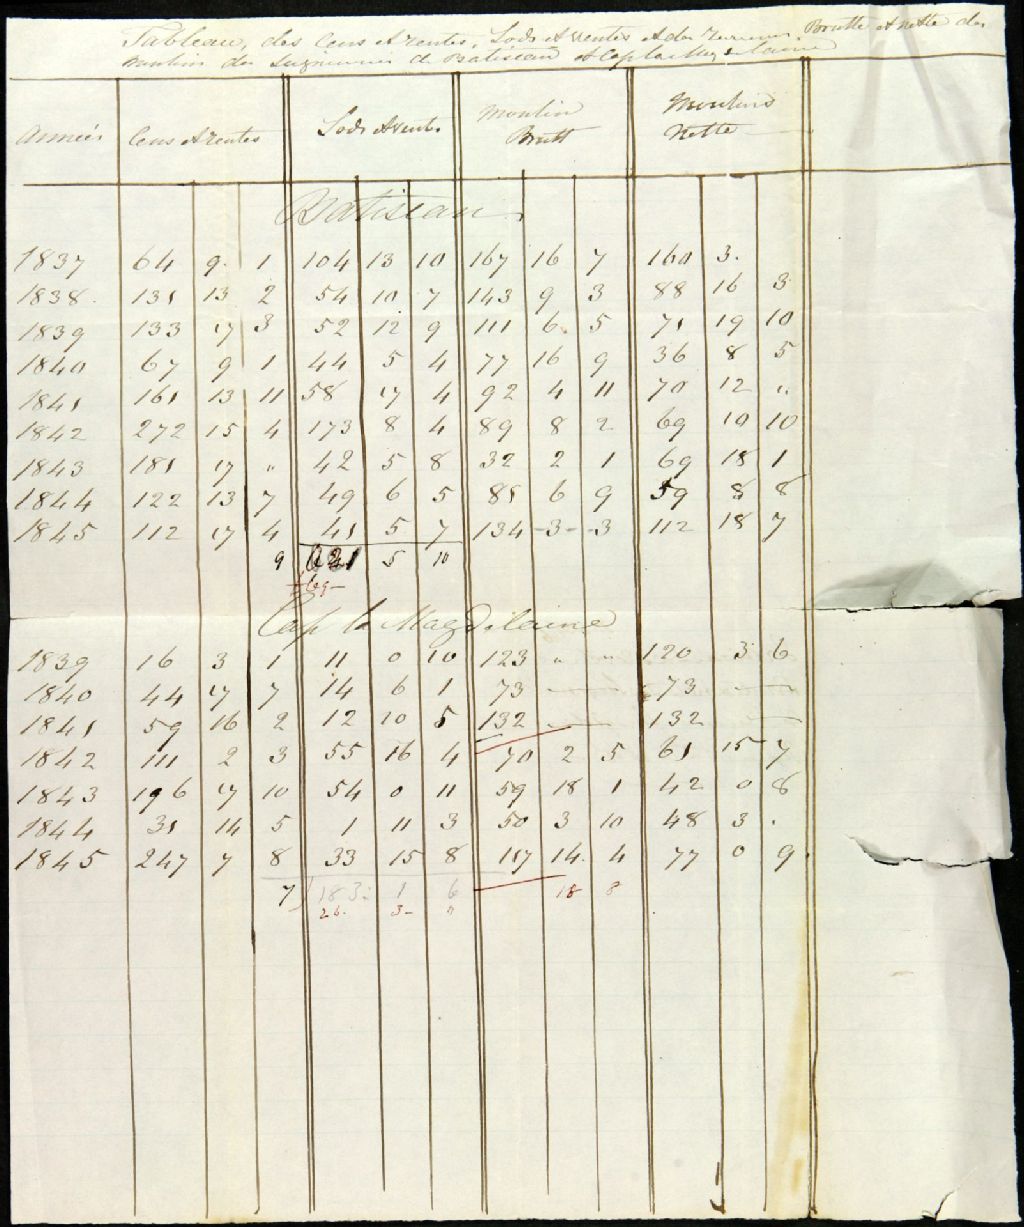 Tableau, des Cens et rentes, Lods et ventes et des revenus Brutte et nette des
moulins des Seigneuries de Batiscan et Cap la Magdelaine
Années Cens et rentes Lods et ventes Moulin Brutt Moulins Nette
Batiscan
1837 64 9 1 104 13 10 167 16 7 160 3
1838 131 13 2 54 10 7 143 9 3 88 16 3
1839 133 17 3 52 12 9 111 6 5 71 19 10
1840 67 9 1 44 5 4 77 16 9 36 8 5
1841 161 13 11 58 17 4 92 4 11 70 12 "
1842 272 15 4 173 8 4 89 8 2 69 10 10
1843 181 17 " 42 5 8 32 2 1 69 18 1
1844 122 13 7 49 6 5 81 6 9 59 8 8
1845 112 17 4 41 5 7 134 - 3 - 3 112 18 7
9 621 5 10
69 -
Cap la Magdelaine
1839 16 3 1 11 0 10 123 " " 120 3 6
1840 44 17 7 14 6 1 73 — 73 —
1841 59 16 2 12 10 5 132 — 132 —
1842 111 2 3 55 16 4 70 2 5 61 15 7
1843 196 17 10 54 0 11 59 18 1 42 0 8
1844 31 14 5 1 11 3 50 3 10 48 3 .
1845 247 7 8 33 15 8 117 14 4 77 0 9
7) 183 : 1 6 18 8
26 . 3 - "